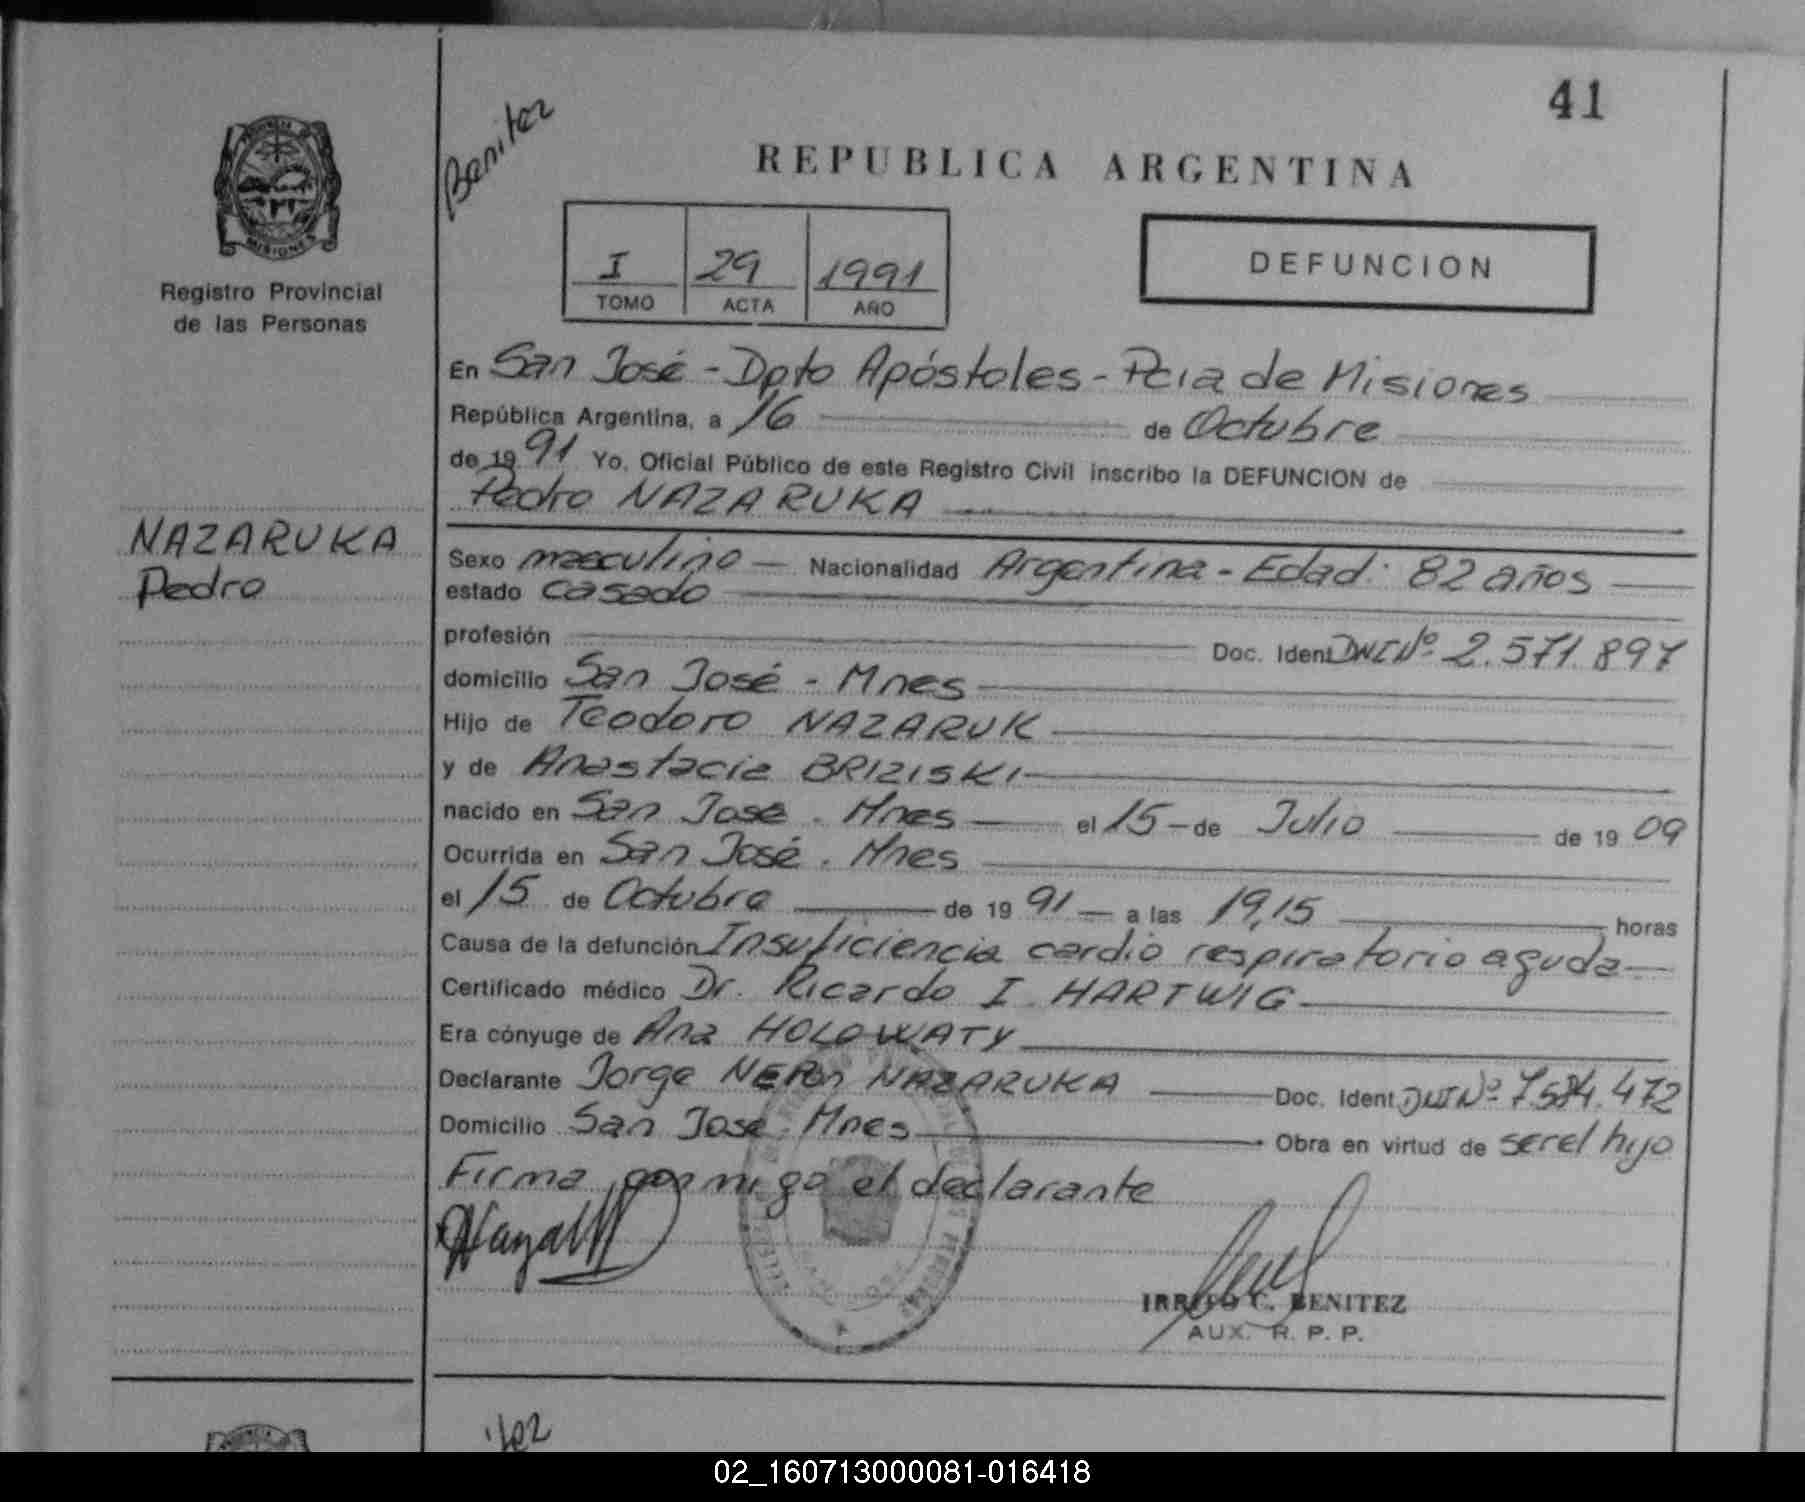 41
Benitez
REPUBLICA ARGENTINA
PROVINCIA D
MISIONES
I 29 1991
TOMO ACTA AÑO
DEFUNCION
Registro Provincial
de las Personas
En San José - Dpto Apóstoles - Pcia de Misiones
República Argentina, a 16 de Octubre
de 19 91 Yo, Oficial Público de este Registro Civil inscribo la DEFUNCION de
Pedro NAZARUKA
NAZARUKA
Pedro
Sexo masculino — Nacionalidad Argentina - Edad: 82 años
estado casado
profesión Doc. Ident DNI Nº 2.571.897
domicilio San José - Mnes
Hijo de Teodoro NAZARUK
y de Anastacia BRIZISKI
nacido en San José . Mnes el 15 - de Julio de 19 09
Ocurrida en San José . Mnes
el 15 de Octubre de 19 91 — a las 19,15 horas
Causa de la defunción Insuficiencia cardio respiratorio aguda
Certificado médico Dr. Ricardo I. HARTWIG
Era cónyuge de Ana HOLOWATY
Declarante Jorge NERON NAZARUKA Doc. Ident DNI Nº 7.584.472
Domicilio San José . Mnes Obra en virtud de ser el hijo
Firma conmigo el declarante
C. BENITEZ
AUX. R. P. P.
02_160713000081-016418